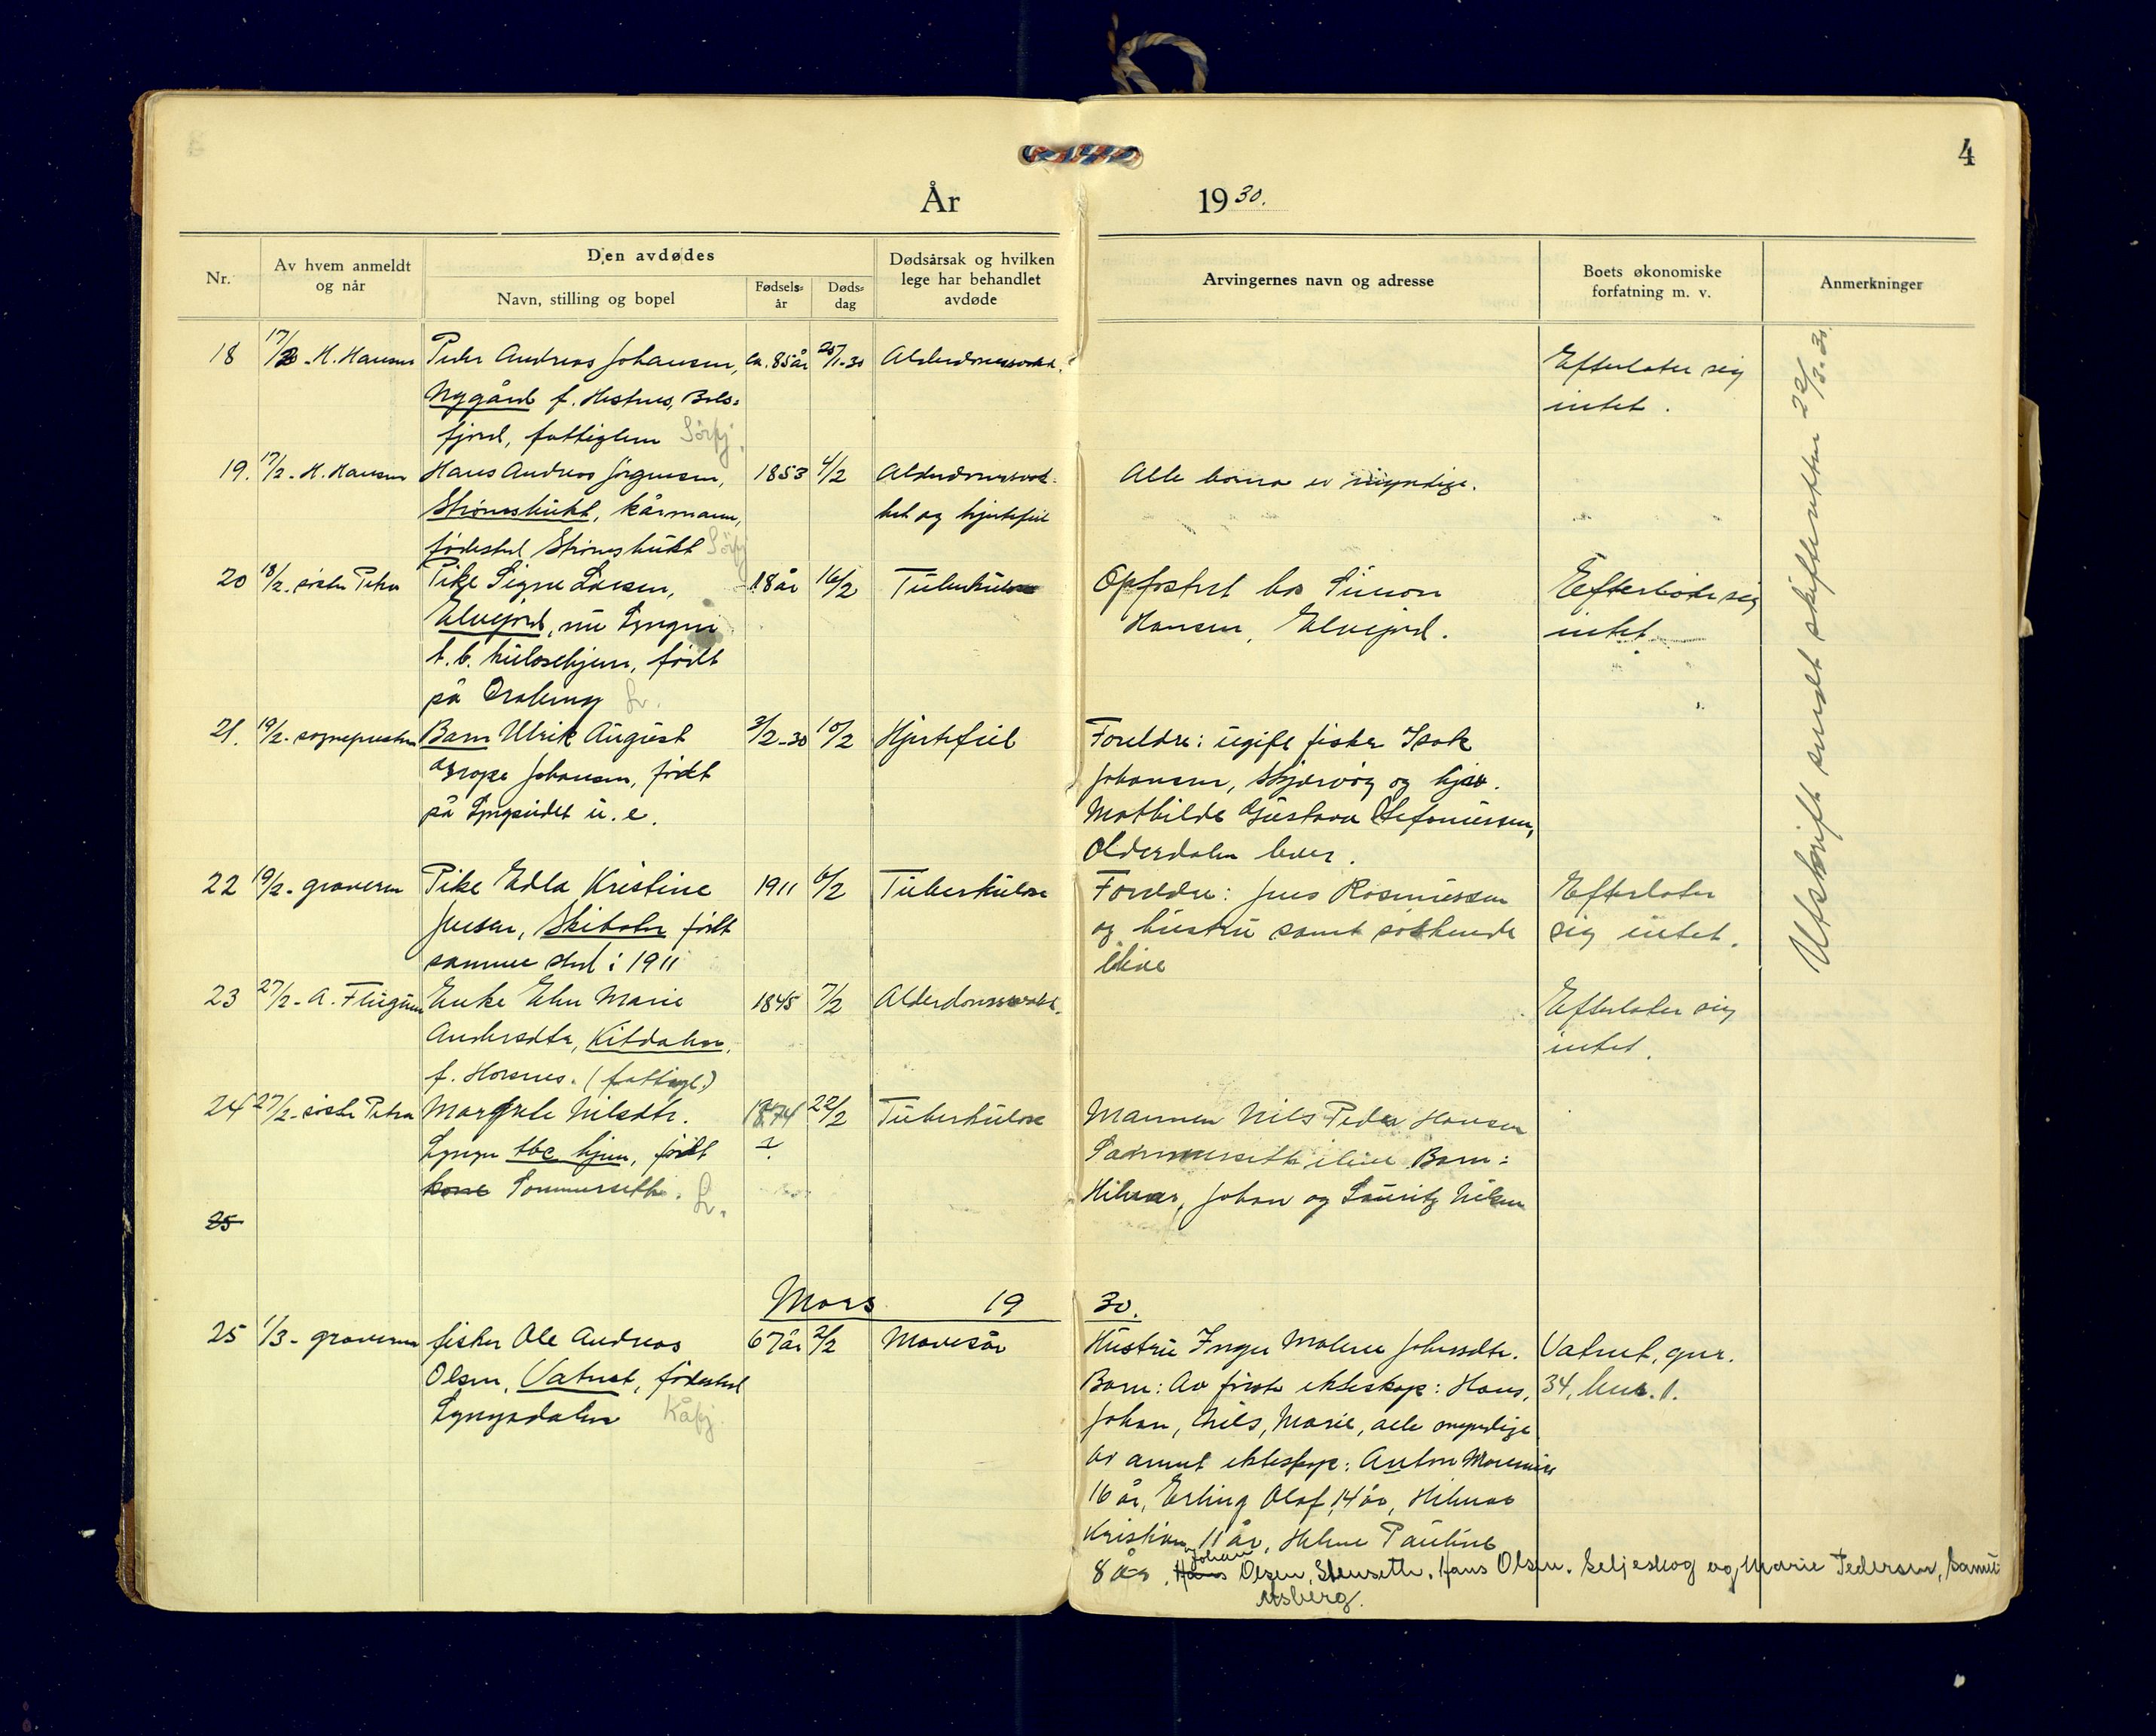 4
År 1930.
Nr.
Av hvem anmeldt
og når
Den avdødes
Navn, stilling og bopel
Fødsels-
år
Døds-
dag
Dødsårsak og hvilken
lege har behandlet
avdøde
Arvingernes navn og adresse
Boets økonomiske
forfatning m. v.
Anmerkninger
18 17/2 - H. Hansen Peder Andreas Johansen, ca. 85 år 25/1-30 Alderdomssvakh. Efterlater sig
Nygård f. Hestnes, Bals- intet.
fjord, fattiglem Sörfj.
19. 17/2 - H. Hansen Hans Andreas Jörgensen, 1853 4/2 Alderdomssvak- Alle barna er myndige.
Strömshukt, kårmann, het og hjertefeil
fødested Strömshukt Sörfj
20 18/2 - söster Petra Pike Signe Larsen, 18 år 16/2 Tuberkulose Opfostret hos Simon Efterlater sig
Elvejord, nu Lyngen Hansen, Elvejord. intet.
t.b. kulosehjem, født
på
21. 19/2 - sognepresten Barn Ulrik August 3/2-30 10/2 Hjertefeil Foreldre: ugift fisker Isak
Johansen, født Johansen, Skjærvöy og
på Lyngseidet u. e. Mathilde Gustava Stefanussen,
Olderdalen lever.
22 19/2 - graveren Pike Edla Kristine 1911 6/2 Tuberkulose Foreldre: Jens Rasmussen Efterlater
Jensen, Skibotn født og hustru samt söskende sig intet.
samme sted i 1911 ilive
23 27/2 - A. Enke Elen Marie 1845 7/2 Alderdomssvakh. Efterlater sig
Andersdtr, Kitdalen, intet.
f. Horsnes. (fattigl.)
24 27/2 - söster Petra Margrete Nilsdtr. 1874 22/2 Tuberkulose Mannen Nils Peder Hansen
Lyngen tbc hjem, født ilive Barn:
kone Sommerseth. L. Hilmar, Johan og Lauritz Nilsen
25
Mars 1930.
25 1/3 - graveren fisker Ole Andreas 67 år 2/2 Mavesår Hustru Inger Malene Johnsdtr. Vatnet, gnr.
Olsen, Vatnet, fødested Barn: Av første ekteskap: Hans, 34, bnr. 1.
Lyngsdalen Kåfj. Johan, Nils, Marie, alle myndige
av annet ekteskap: Anton
16 år, Erling Olaf 14 år, Hilmar
Kristian 11 år, Helene Pauline
8 år. Hans Johan Olsen, Stenseth. Hans Olsen. Seljeskog og Marie Pedersen,
Utskrift sendt skifteretten 22/3-30.